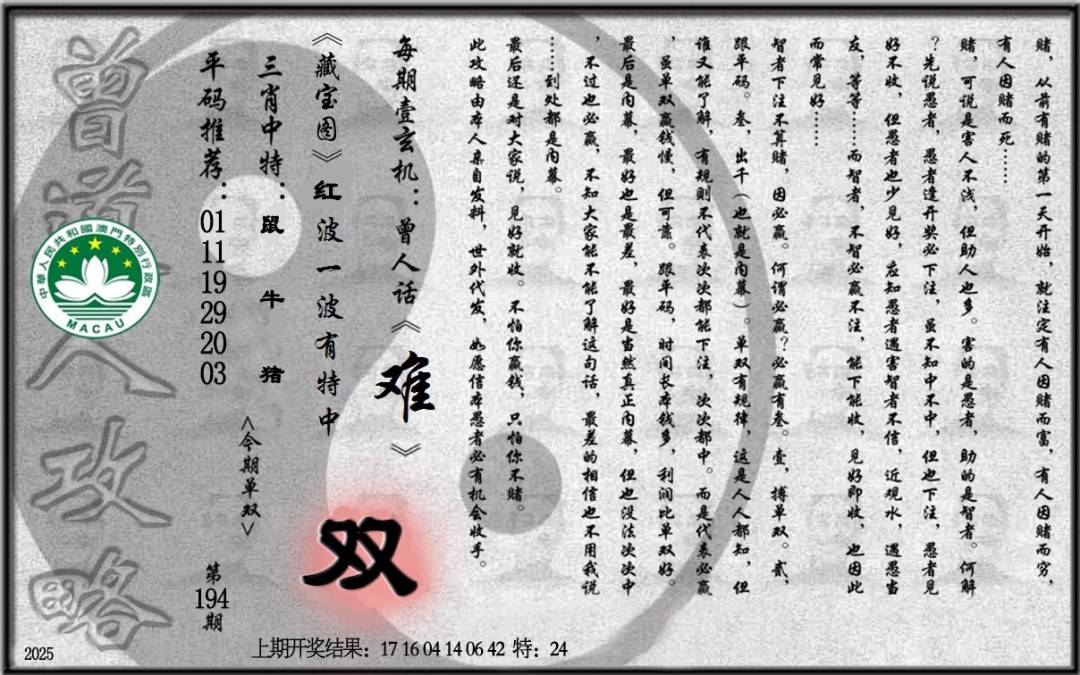 赌，从前有赌的第一天开始，就注定有人因赌而富，有人因赌而穷，
有人因赌而死……
赌，可说是害人不浅，但助人也多。害的是愚者，助的是智者。何解
？先说愚者，愚者逢开奖必下注，虽不知中不中，但也下注，愚者见
好不收，但愚者也少见好，应知愚者遇害智者不信，近观水，遇愚当
友，等等……而智者，不智必赢不注，能下能收，见好即收，也因此
而常见好……
智者下注不算赌，因必赢。何谓必赢？必赢有叁。壹，搏单双。贰，
跟平码。叁，出千（也就是内幕）。单双有规律，这是人人都知，但
谁又能了解，有规则不代表次次都能下注，次次都中。而是代表必赢
，虽单双赢钱慢，但可靠。跟平码，时间长本钱多，利润比单双好。
最后是内幕，最好也是最差，最好是当然真正内幕，但也没法次次中
，不过也必赢，不知大家能不能了解这句话，最差的相信也不用我说
……到处都是内幕。
最后还是对大家说，见好就收。不怕你赢钱，只怕你不赌。
此攻略由本人亲自发料，世外代发，如愿信本愚者必有机会收手。
每期壹玄机：曾人话《难》
《藏宝图》红波一波有特中
双
三肖中特：鼠 牛 猪
<今期单双>
平码推荐：01 11 19 29 20 03
第194期
曾道人攻略
中華人民共和國澳門特別行政區
MACAU
2025
上期开奖结果：17 16 04 14 06 42 特：24